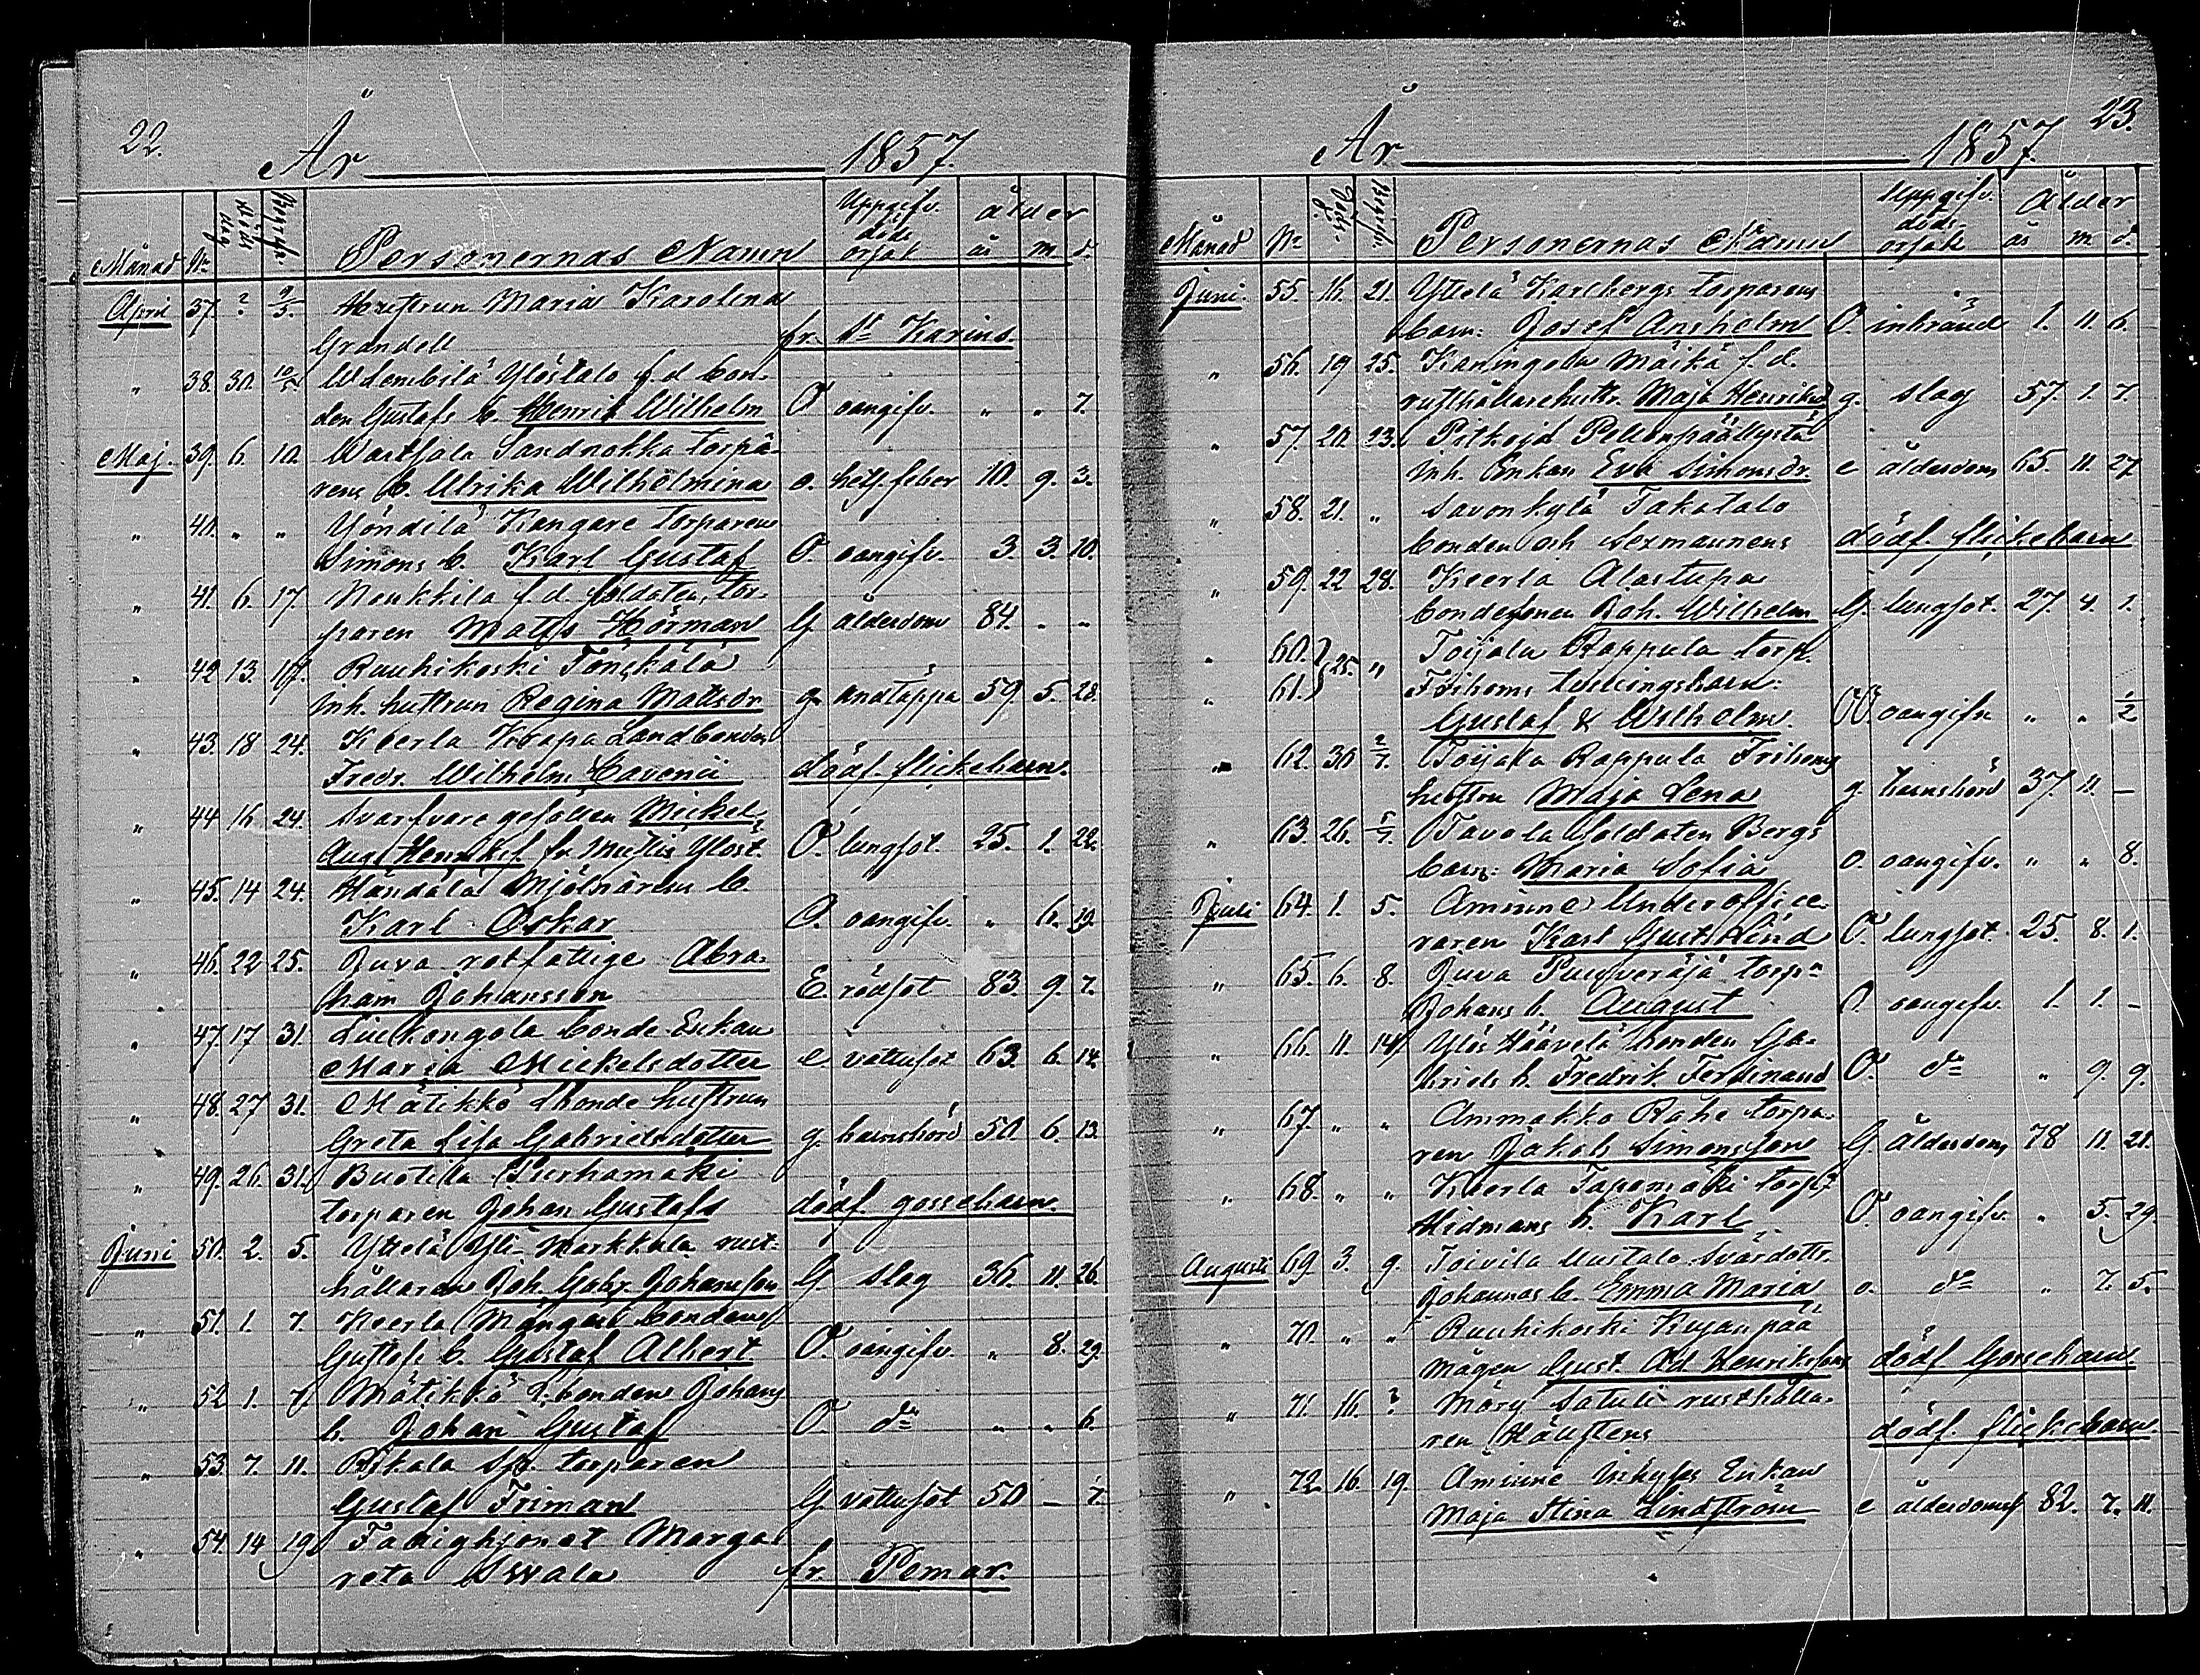 22.
År 1857.
Månad No Döds dag Begrafn. Personernas Namn Uppgifv. döds orsak ålder år m. d.
April 37. ? 4/5. Hustrun Maria Karolina
Grandell fr. St Karins.
" 38. 30. 10/5. Ylöstalo f.d. bon-
den Gustafs b. Henrik Wilhelm O oangifv. " " 7.
Maj. 39. 6. 10. Wartsala Sandnokka torpa-
rens b. Ulrika Wilhelmina o. hets. feber 10. 9. 3.
" 40. " " Yöndilä Kangare torparen
Simons b. Karl Gustaf O. oangifv. 3. 3. 10.
" 41. 6. 17. f.d. soldaten, tor-
paren Matts Hörman G ålderdom 84. " "
" 42. 13. 17. Ruuhikoski Tonckälä
inh. hustrun Regina Matsdr g andtäppa 59. 5. 28.
" 43. 18 24. Koerla Landbonden
Fredr. Wilhelm dödf. flickebarn.
" 44. 16 24. Svarfvare gesällen Mickel
Aug. Henriksf. fr. Ylöst. O. lungsot. 25. 1. 22.
" 45. 14 24. Handala Mjölnaren b.
Karl Oskar O. oangifv. " 6. 29.
" 46. 22 25. Juva rotfattige Abra-
ham Johansson E. rödsot 83. 9. 7.
" 47. 17 31. Liuckongola bonde Enkan
Maria Mickelsdotter e. vattusot 63. 6. 14.
" 48. 27 31. Mätikkö bonde hustrun
Greta Lisa Gabrielsdotter g. barnsbörd 50 6. 13.
" 49. 26. 31. Buotila Purhamäki
torparen Johan Gustafs dödf. gossebarn.
Juni 50. 2. 5. Yttelä Yli Markkula rust-
hållaren Joh. Gabr. Johansson G. slag 36. 11. 26.
" 51. 1. 7. Koerla bondens
Gustafs b. Gustaf Albert O. oangifv. " 8. 29.
" 52 1. 7 Mätikkö bonden Johans
b. Johan Gustaf O. do " " 6.
" 53. 7. 11. torparen
Gustaf Friman G vattusot 50 — 7.
" 54. 14 19 Fattighjonet Marga-
reta Swala fr. Pemar.
23.
År 1857.
Månad No Döds- Begrafn. Personernas Namn Uppgifv. döds- orsak Ålder år m d.
Juni. 55. 16. 21. Yttelä Karlbergs torparens
barn: Josef Anshelm O. inbränd 1. 11. 6.
" 56. 19 25. Kaningola Maikä f.d.
rusthållarehustr. Maja Henriksd g. slag 57. 1. 7.
" 57. 20. 23.
inh. Enkan Eva Simonsdr. e ålderdom 65. 11. 27
" 58. 21. " Savonkylä Takatalo
bonden och Sexmannens dödf. flickebarn
" 59. 22 28. Koerla Alastupa
bondesonen Joh. Wilhelm G. lungsot. 27. 4. 1.
" 60. } 25. " Toijala Rappula torp.
" 61. Friboms tvillingsbarn:
Gustaf & Wilhelm. OO. oangifv. " " 1/2
" 62. 30 2/7. Toijala Rappula Friboms
hustru Maja Lena g. barnsbörd 37. 11. —
" 63. 26. 5/7. Tavola Soldaten Bergs
barn: Maria Sofia o. oangifv. " " 8.
Juli 64. 1. 5. Aminne Underoffice-
raren Karl Gust. Lind O. lungsot. 25. 8. 1.
" 65. 6. 8. Juva torpn
Johans b. August O. oangifv. 1. 1. —
" 66. 11. 14. Ylös Häävelä bonden Ga-
briels b. Fredrik Ferdinand O. do " 9. 9.
" 67. " " Ammakko Rahe torpa-
ren Jakob Simonsson G. ålderdom 78 11. 21.
" 68. " " Koerla Tapamäki torp.
Widmans b. Karl O. oangifv. " 5. 29
Augusti 69. 3. 9. Toivila Uustalo
Johannas b. Emma Maria o. do " 7. 5.
" 70. " " Ruuhikoski Kujanpää
mågen Gust. Ad. Henriksson dödf Gossebarn
" 71. 16. ? Märy Satuli rusthålla-
ren dödf. flickebarn.
" 72. 16. 19. Aminne Enkan
Maja Stina Lindström e ålderdomsf 82. 7. 11.